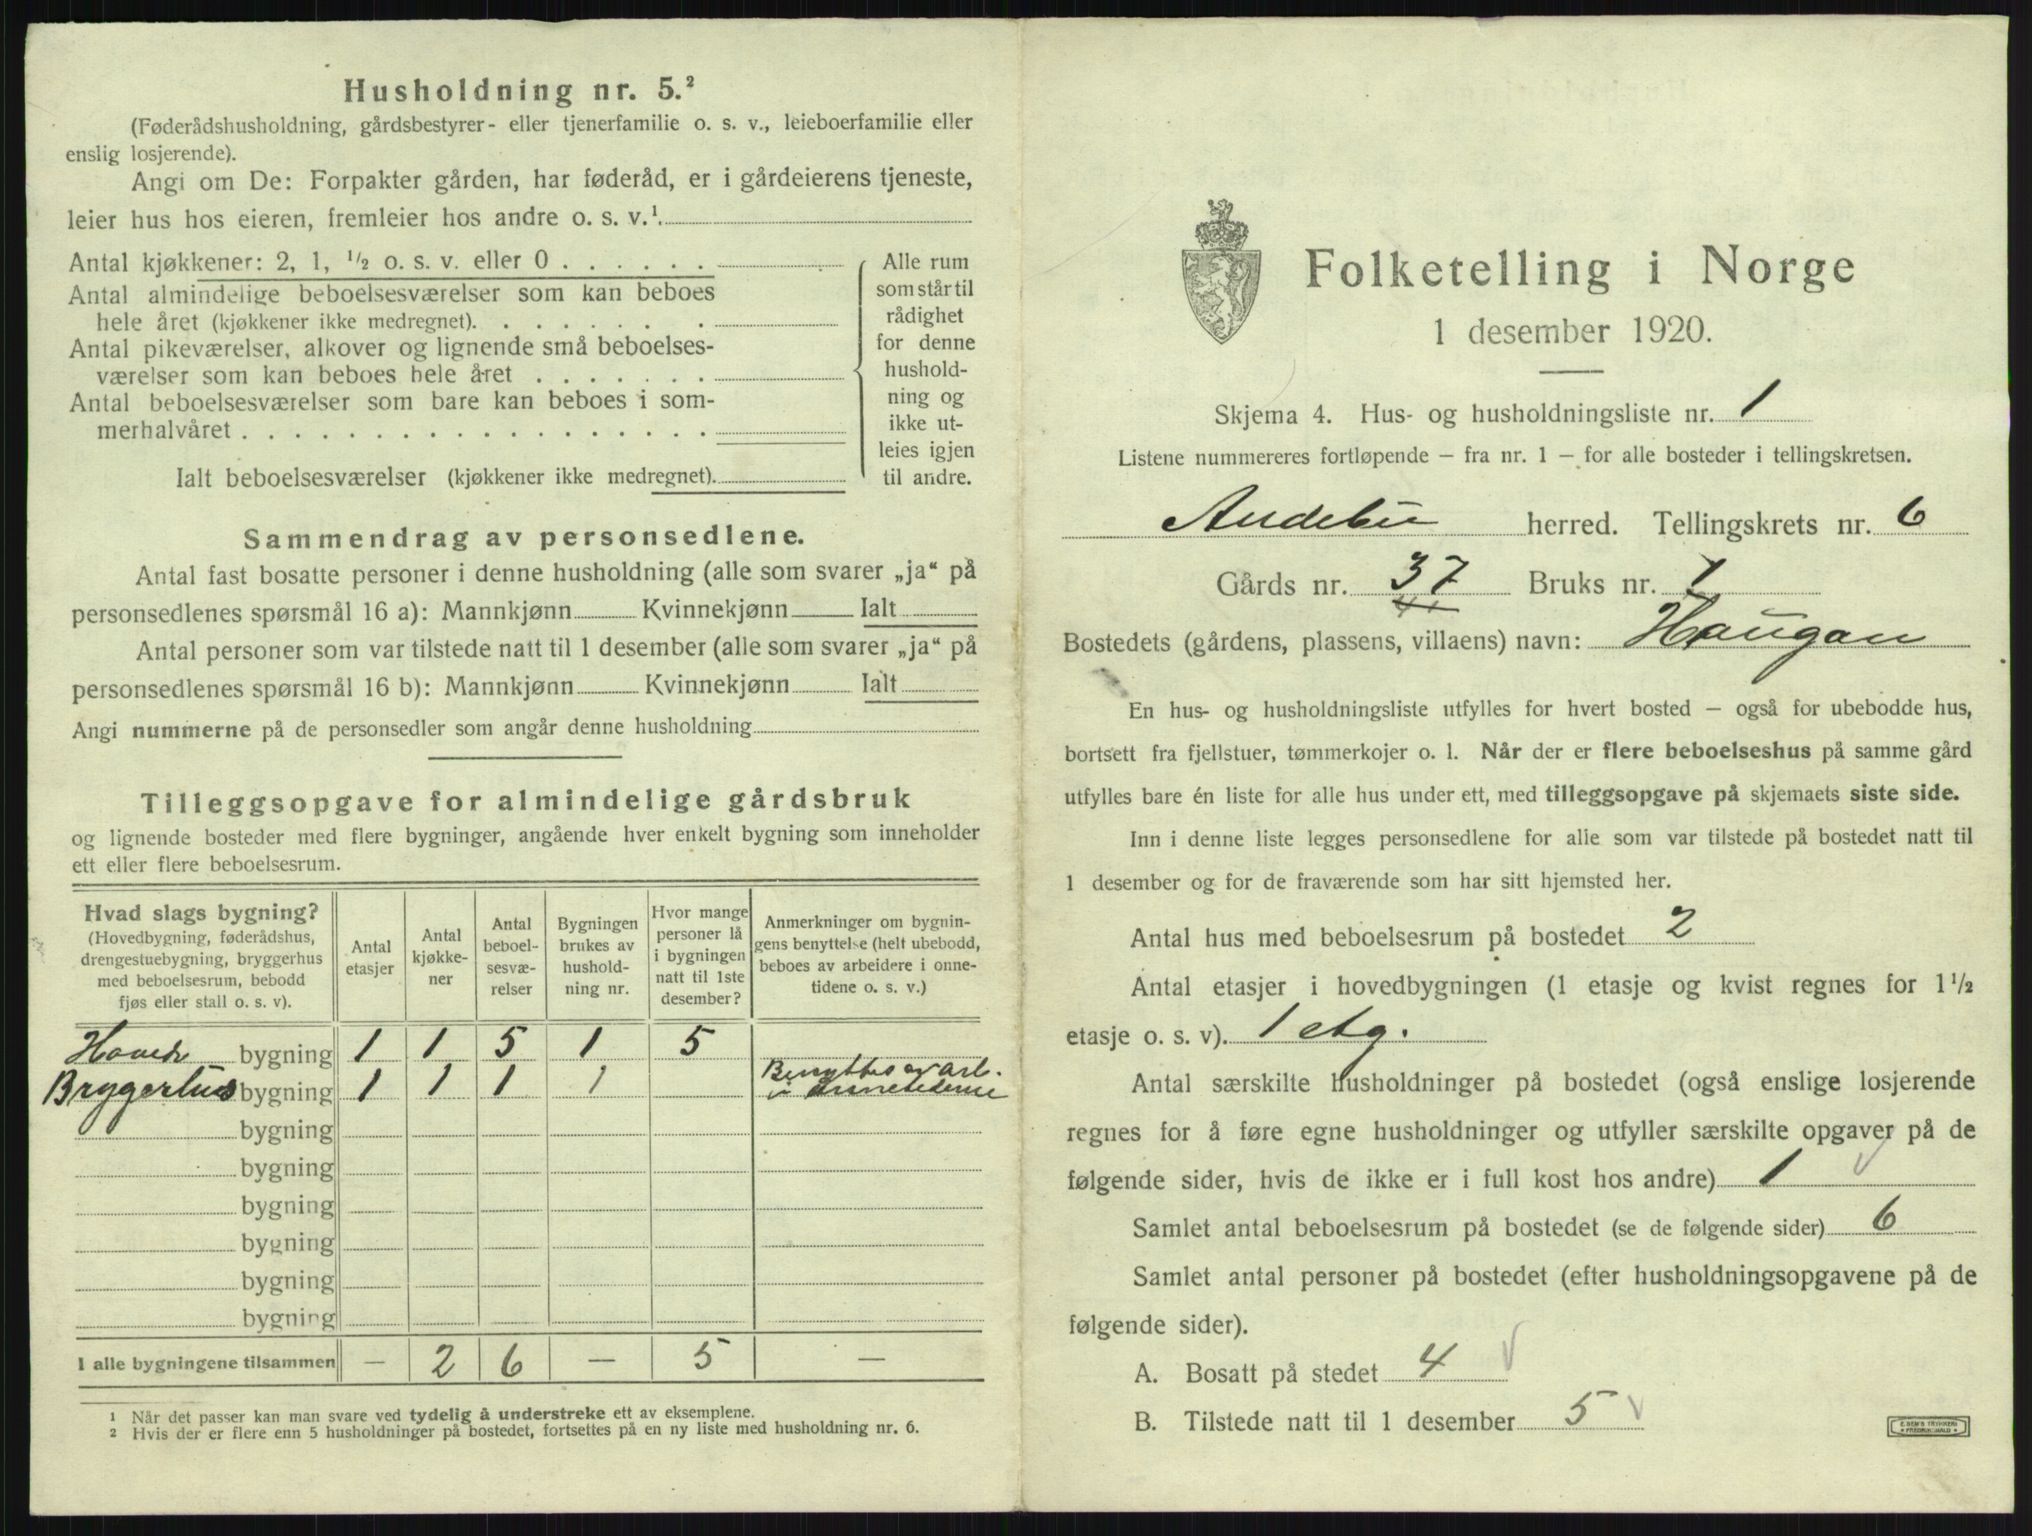 Husholdning nr. 5.²
(Føderådshusholdning, gårdsbestyrer- eller tjenerfamilie o. s. v., leieboerfamilie eller
enslig losjerende).
Angi om De: Forpakter gården, har føderåd, er i gårdeierens tjeneste,
leier hus hos eieren, fremleier hos andre o. s. v.¹
Antal kjøkkener: 2, 1, ½ o. s. v. eller 0 . . . . . .
Antal almindelige beboelsesværelser som kan beboes
hele året (kjøkkener ikke medregnet). . . . . . . .
Antal pikeværelser, alkover og lignende små beboelses-
værelser som kan beboes hele året . . . . . . .
Antal beboelsesværelser som bare kan beboes i som-
merhalvåret . . . . . . . . . . . . . . . . . .
Ialt beboelsesværelser (kjøkkener ikke medregnet).
Alle rum
som står til
rådighet
for denne
hushold-
ning og
ikke ut-
leies igjen
til andre.
Sammendrag av personsedlene.
Antal fast bosatte personer i denne husholdning (alle som svarer „ja“ på
personsedlenes spørsmål 16 a): Mannkjønn Kvinnekjønn Ialt
Antal personer som var tilstede natt til 1 desember (alle som svarer „ja“ på
personsedlenes spørsmål 16 b): Mannkjønn Kvinnekjønn Ialt
Angi nummerne på de personsedler som angår denne husholdning
Tilleggsopgave for almindelige gårdsbruk
og lignende bosteder med flere bygninger, angående hver enkelt bygning som inneholder
ett eller flere beboelsesrum.
Hvad slags bygning?
(Hovedbygning, føderådshus,
drengestuebygning, bryggerhus
med beboelsesrum, bebodd
fjøs eller stall o. s. v).
Antal
etasjer
Antal
kjøkke-
ner
Antal
beboel-
sesvæ-
relser
Bygningen
brukes av
hushold-
ning nr.
Hvor mange
personer lå
i bygningen
natt til 1ste
desember?
Anmerkninger om bygnin-
gens benyttelse (helt ubebodd,
beboes av arbeidere i onne-
tidene o. s. v.)
Hoved bygning 1 1 5 1 5
Bryggerhus bygning 1 1 1 1 Benyttes av arb. i onnetiderne
bygning
bygning
bygning
bygning
bygning
bygning
I alle bygningene tilsammen — 2 6 — 5 —
¹ Når det passer kan man svare ved tydelig å understreke ett av eksemplene.
² Hvis der er flere enn 5 husholdninger på bostedet, fortsettes på en ny liste med husholdning nr. 6.
Folketelling i Norge
1 desember 1920.
Skjema 4. Hus- og husholdningsliste nr. 1
Listene nummereres fortløpende – fra nr. 1 – for alle bosteder i tellingskretsen.
Andebu herred. Tellingskrets nr. 6
Gårds nr. 37 Bruks nr. 1
Bostedets (gårdens, plassens, villaens) navn: Haugan
En hus- og husholdningsliste utfylles for hvert bosted – også for ubebodde hus,
bortsett fra fjellstuer, tømmerkojer o. l. Når der er flere beboelseshus på samme gård
utfylles bare én liste for alle hus under ett, med tilleggsopgave på skjemaets siste side.
Inn i denne liste legges personsedlene for alle som var tilstede på bostedet natt til
1 desember og for de fraværende som har sitt hjemsted her.
Antal hus med beboelsesrum på bostedet 2
Antal etasjer i hovedbygningen (1 etasje og kvist regnes for 1½
etasje o. s. v). 1 etg.
Antal særskilte husholdninger på bostedet (også enslige losjerende
regnes for å føre egne husholdninger og utfyller særskilte opgaver på de
følgende sider, hvis de ikke er i full kost hos andre) 1
Samlet antal beboelsesrum på bostedet (se de følgende sider) 6
Samlet antal personer på bostedet (efter husholdningsopgavene på de
følgende sider).
A. Bosatt på stedet 4
B. Tilstede natt til 1 desember 5
E. SEM'S TRYKKERI
FREDRIKSHALD